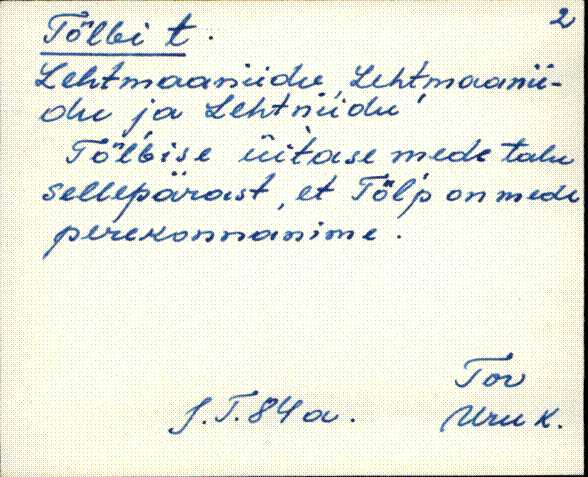 2
Tölbi t.
Lehtmaaniidu, Lehtmaanii-
du ja Lehtniidu
Tölbise üitase mede talu
sellepärast, et Tölp on mede
perekonnanime.
Tor
J.T. 84 a. Uru k.